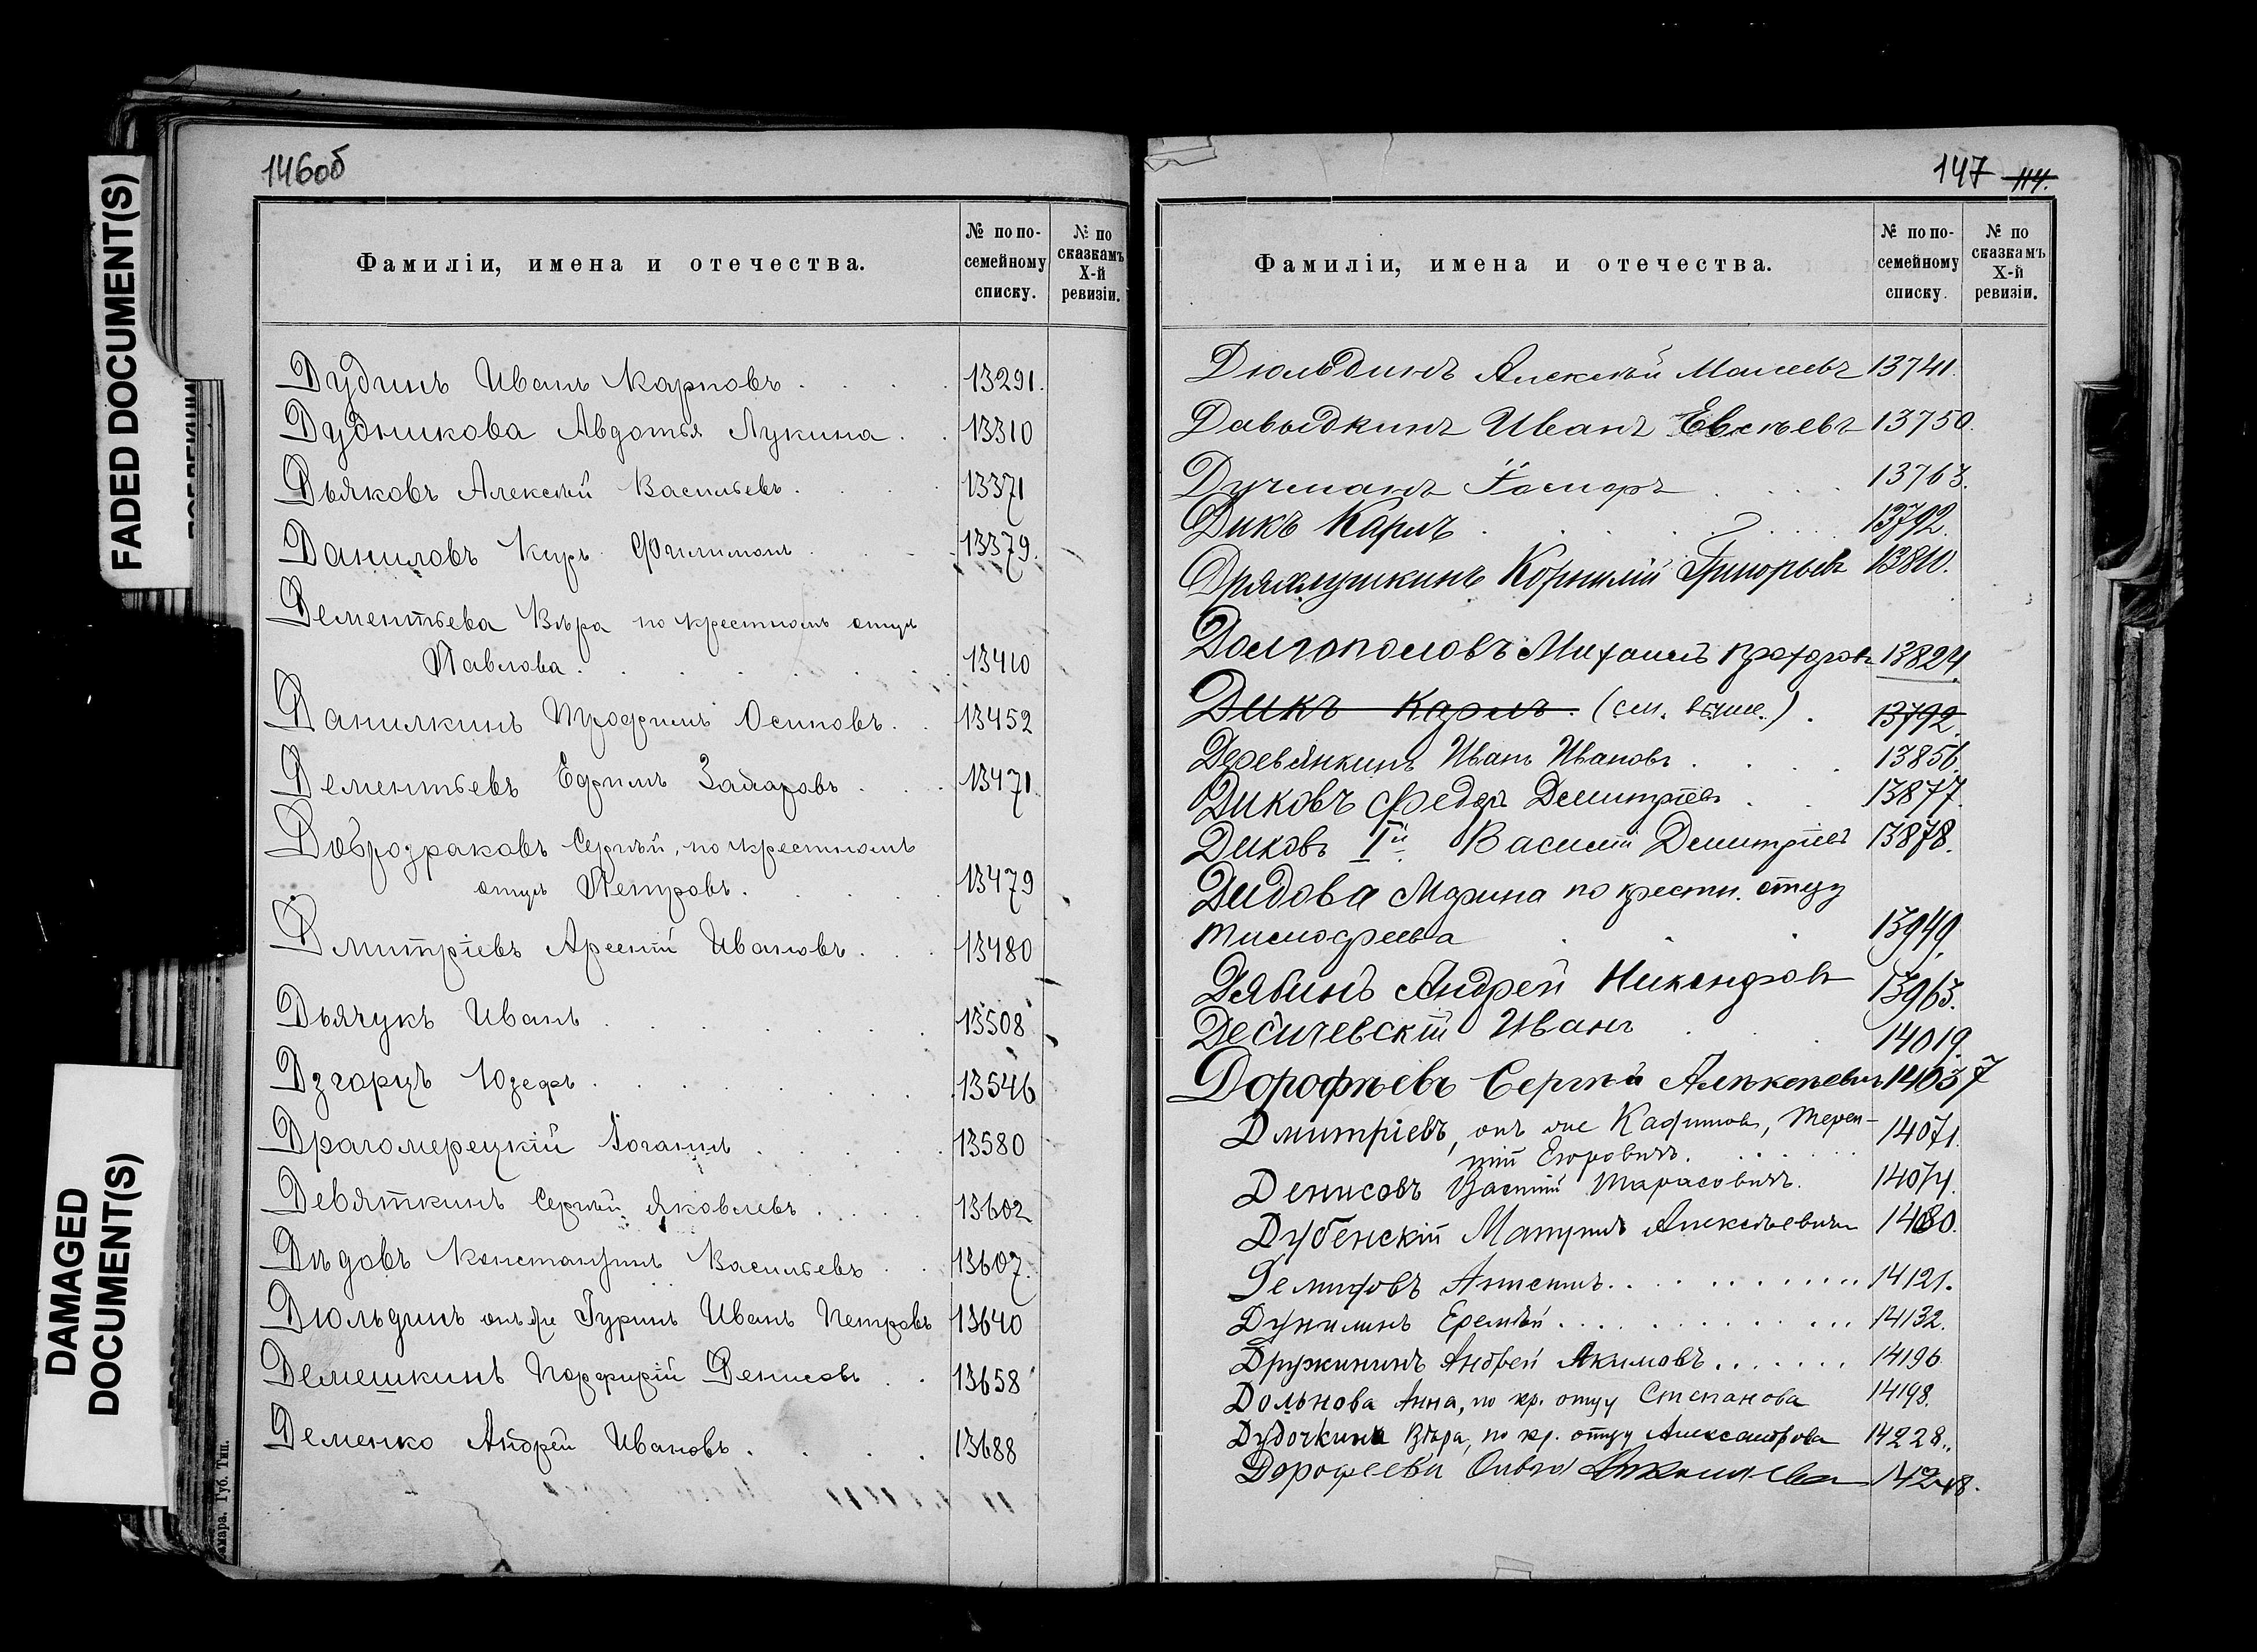 FADED DOCUMENT(S)
DAMAGED
DOCUMENT(S)
146об
Фамиліи, имена и отечества.
№ по по-
семейному
списку.
№ по
сказкамъ
X-й
ревизіи.
Дудинъ Иванъ Карповъ 13291.
Дудникова Авдотья Лукина 13310
Дьяковъ Алексѣй Васильевъ 13371
Даниловъ Киръ Филимон 13379.
Дементьева Вѣра по крестному отцу
Павлова 13410
Данилкинъ Трофимъ Осиповъ 13452
Дементьевъ Ефимъ Захаровъ 13471
Доброзраковъ Сергѣй, по крестному
отцу Петровъ 13479
Дмитріевъ Арсеній Ивановъ 13480
Дьячукъ Иванъ 13508
Дзгорцъ Юзефъ 13546
Драгомерецкій Іоганъ 13580
Девяткинъ Сергѣй Яковлевъ 13602
Дѣдовъ Константинъ Васильевъ 13607.
Дюльдинъ онъ же Гуринъ Иванъ Петровъ 13640
Демешкинъ Порфирій Денисовъ 13658
Деменко Андрей Ивановъ 13688
Губ. Тип.
147 114.
Фамиліи, имена и отечества.
№ по по-
семейному
списку.
№ по
сказкамъ
X-й
ревизіи.
Дюльдинъ Алексѣй Моисеевъ 13741.
Давыдкинъ Иванъ Евсѣевъ 13750.
Дучманъ 13763.
Дикъ Карлъ 13792.
Дряхлушкинъ Корнилій Григорьевъ 13810.
Долгополовъ Михаилъ Прохоровъ 13824.
Дикъ Карлъ. (см. выше.) 13792.
Деревянкинъ Иванъ Ивановъ 13856
Диковъ Федоръ Дмитріевъ 13877.
Диковъ Iй Василій Дмитріевъ 13878.
Дидова Марина по крестн. отцу
Тимофеева 13949.
Дябинъ Андрей Никандровъ 13963.
Десичевскій Иванъ 14019.
Дорофѣевъ Сергѣй Алексѣевичъ 14037
Дмитріевъ, онъ же Терен-
тій Егоровичъ. 14071.
Денисовъ Василій Тарасовичъ. 14074.
Дубенскій Алексѣевичъ 14080.
14121.
Дунилинъ Еремѣй 14132.
Дружининъ Андрей Акимовъ 14196
Дольнова Анна, по кр. отцу Степанова 14198.
Дудочкина Вѣра, по кр. отцу Александрова 14228.
Дорофеева Ольга 14248.